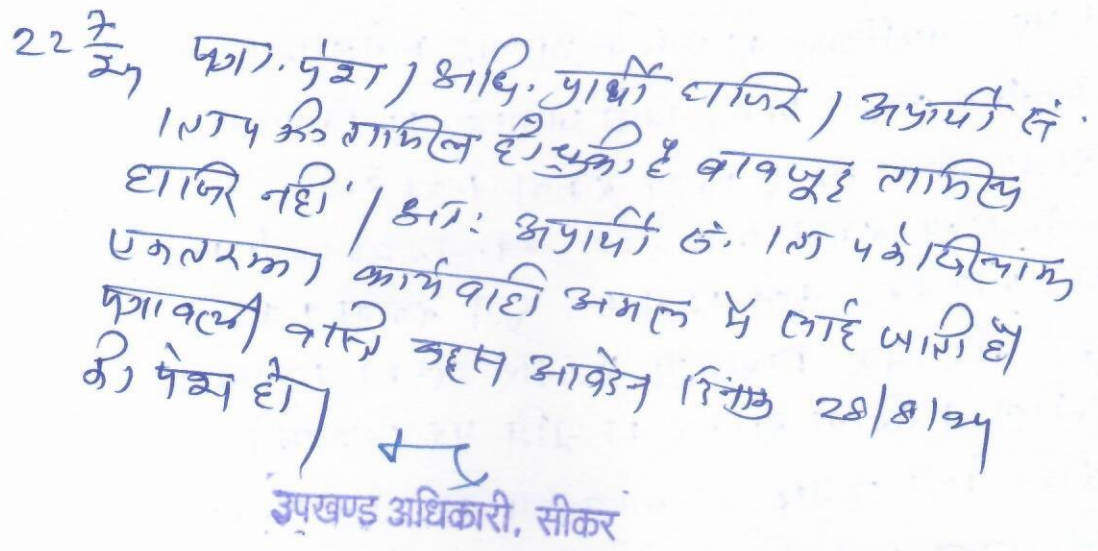 22 7/24 पत्रा. पेश। अधि. प्रार्थी हाजिर। अप्रार्थी सं.
1 ता 4 की तामिल हो चुकी है बावजूद तामिल
हाजिर नहीं। अतः अप्रार्थी सं. 1 ता 4 के खिलाफ
एकतरफा कार्यवाही अमल में लाई जाती है।
पत्रावली वास्ते बहस आवेदन दिनांक 28/8/24
को पेश हो।
उपखण्ड अधिकारी, सीकर